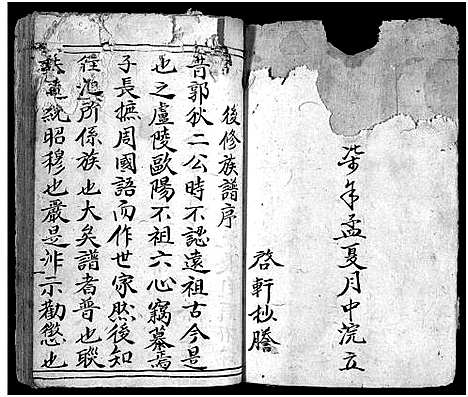 柒年孟夏月中浣立
啓軒杣謄
後修族譜序
昔郭狄二公時不認遠祖古今是
也之盧陵歐陽不祖六心竊慕焉
子長摭周國語而作世家然後知
所係族也大矣譜者普也聯
統昭穆也嚴是非示勸懲也